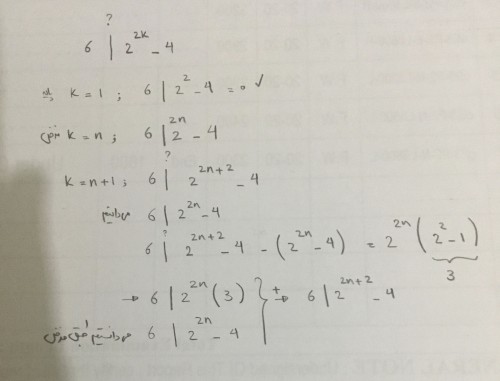 ?
6 | 2^{2k} - 4
پایه k = 1 ; 6 | 2^2 - 4 = 0 ✓
فرض k = n ; 6 | 2^{2n} - 4
?
k = n+1 ; 6 | 2^{2n+2} - 4
می‌دانیم 6 | 2^{2n} - 4
?
6 | 2^{2n+2} - 4 - (2^{2n} - 4) = 2^{2n} (2^2 - 1)
3
→ 6 | 2^{2n} (3) } + → 6 | 2^{2n+2} - 4
می‌دانستیم طبق فرض 6 | 2^{2n} - 4